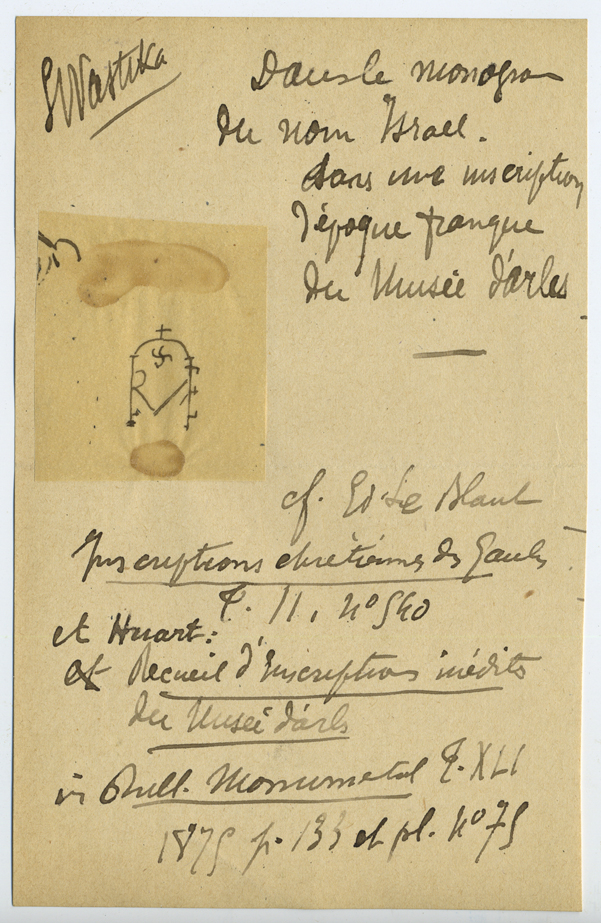 Swastika
Dans le monogra
du nom Israel.
dans une inscription
d'époque franque
du Musée d'arles
cf. Ed. Le Blant
Inscriptions chrétiennes des Gaules
T. II, nº 540
et Huart:
et Recueil d'Inscriptions inédits
du Musée d'arles
in Bull. Monumental T. XLI
1875 p. 133 et pl. nº 75